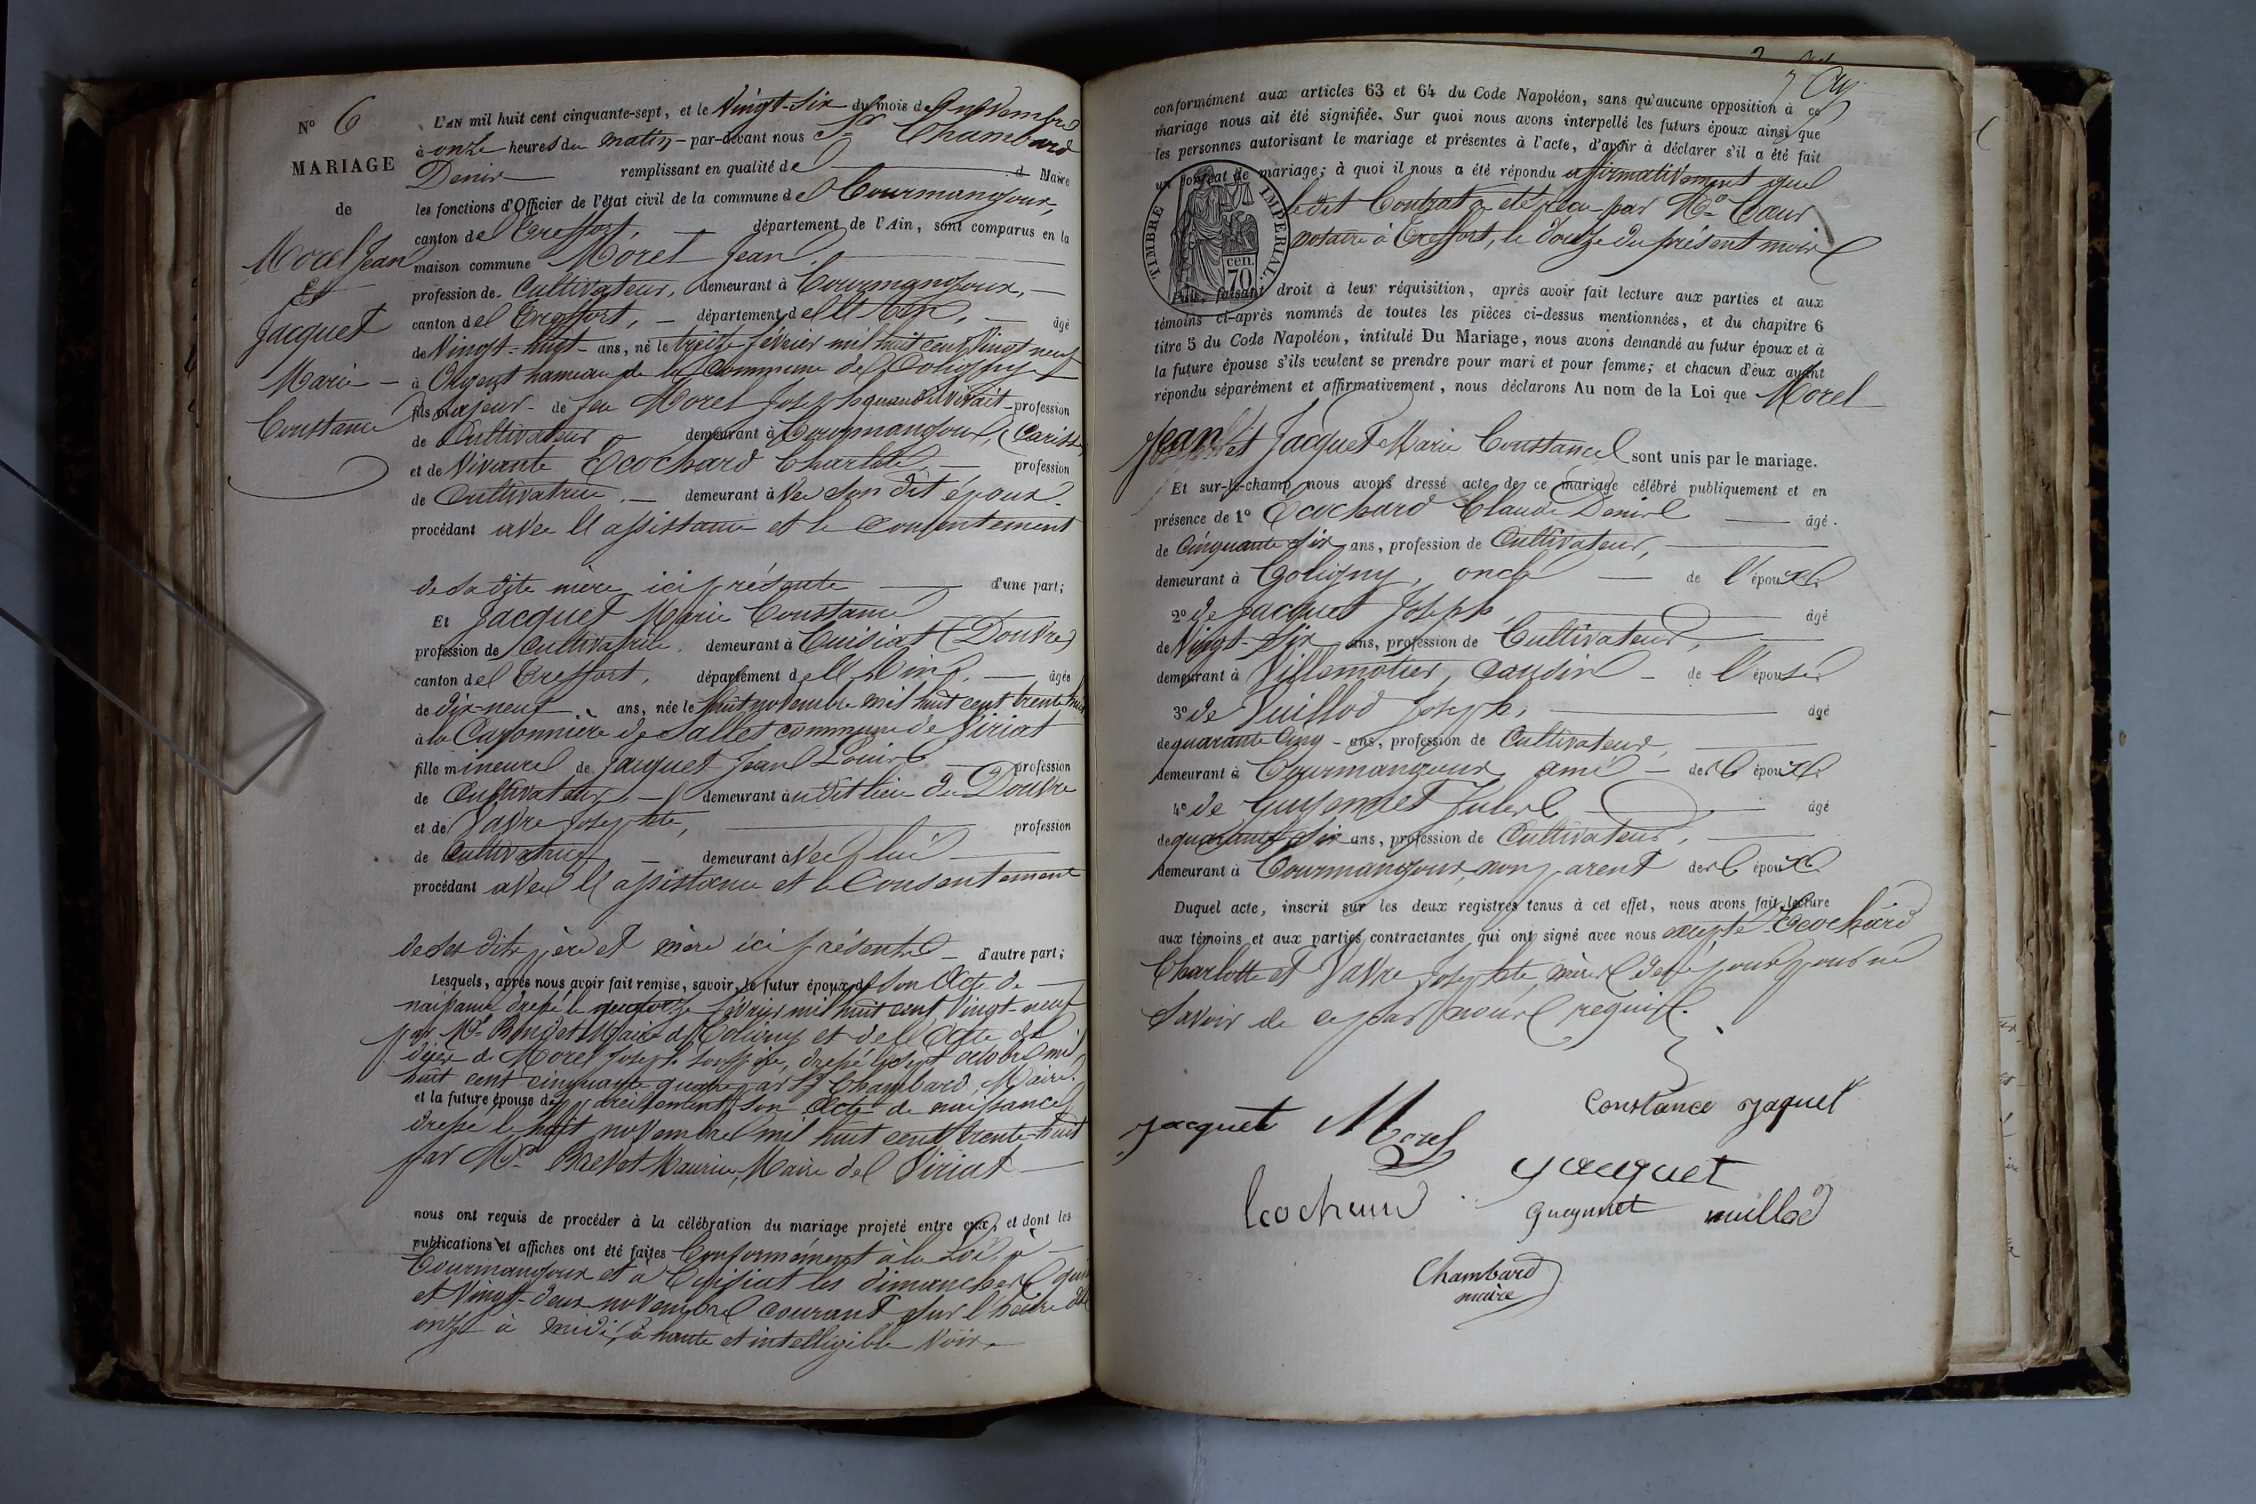 N° 6
MARIAGE
de
Morel Jean
Et
Jacquet
Marie
Constance
L'AN mil huit cent cinquante-sept, et le Vingt-six du mois de Novembre
à onze heures du matin par-devant nous Sr Chambard
Denis remplissant en qualité de Maire
les fonctions d'Officier de l'état civil de la commune de Courmangoux,
canton de Treffort, département de l'Ain, sont comparus en la
maison commune Morel Jean
profession de Cultivateur, demeurant à Courmangoux,
canton de Treffort, département de l'Ain, âgé
de Vingt-huit ans, né le treize février mil huit cent vingt neuf
à hameau de la Commune de Coligny
fils majeur de feu Morel Joseph quand vivait profession
de Cultivateur demeurant à Courmangoux,
et de Vivante Ecochard Charlotte, profession
de Cultivatrice demeurant avec son dit époux
procédant avec l'assistance et le consentement
de sa dite mère ici présente d'une part;
Et Jacquet Marie Constance
profession de Cultivatrice demeurant à Cuisiat (Douvre)
canton de Treffort, département de l'Ain, âgée
de dix-neuf ans, née le huit novembre mil huit cent trente huit
à la Caronnière de Sallet commune de Viriat
fille mineure de Jacquet Jean Louis profession
de Cultivateur demeurant au dit lieu de Douvre
et de Vavre Josephte, profession
de Cultivatrice demeurant avec lui
procédant avec l'assistance et le Consentement
de ses dits père et mère ici présents d'autre part;
Lesquels, après nous avoir fait remise, savoir, le futur époux de son Acte de
naissance dressé le quatorze février mil huit cent vingt-neuf
par Mr Maire de Coligny et de l'acte de
décès de Morel Joseph son père, dressé le sept octobre mil
huit cent cinquante quatre par Sr Chambard, Maire.
et la future épouse de pareillement son Acte de naissance
dressé le huit novembre mil huit cent trente-huit
par Mr Brevet Maurice, Maire de Viriat
nous ont requis de procéder à la célébration du mariage projeté entre eux, et dont les
publications et affiches ont été faites Conformément à la Loi, à
Courmangoux et à Cuisiat les dimanches quinze
et Vingt-deux novembre courant sur l'heure de
onze à midi, à haute et intelligible voix.
conformément aux articles 63 et 64 du Code Napoléon, sans qu'aucune opposition à ce
mariage nous ait été signifiée. Sur quoi nous avons interpellé les futurs époux ainsi que
les personnes autorisant le mariage et présentes à l'acte, d'avoir à déclarer s'il a été fait
un contrat de mariage; à quoi il nous a été répondu affirmativement que
le dit Contrat a été reçu par Me Cœur
notaire à Treffort, le douze du présent mois
TIMBRE IMPÉRIAL.
cen.
70
Puis, faisant droit à leur réquisition, après avoir fait lecture aux parties et aux
témoins ci-après nommés de toutes les pièces ci-dessus mentionnées, et du chapitre 6
titre 5 du Code Napoléon, intitulé Du Mariage, nous avons demandé au futur époux et à
la future épouse s'ils veulent se prendre pour mari et pour femme; et chacun d'eux ayant
répondu séparément et affirmativement, nous déclarons Au nom de la Loi que Morel
Jean et Jacquet Marie Constance sont unis par le mariage.
Et sur-le-champ nous avons dressé acte de ce mariage célébré publiquement et en
présence de 1° Ecochard Claude Denis âgé
de Cinquante six ans, profession de Cultivateur,
demeurant à Coligny, oncle de l'époux
2° de Jacquet Joseph, âgé
de Vingt-six ans, profession de Cultivateur,
demeurant à Villemotier, cousin de l'épouse
3° de Vuillod Joseph, âgé
de quarante cinq ans, profession de Cultivateur,
demeurant à Courmangoux, ami des époux
4° de Guyennet Jules âgé
de quarante six ans, profession de Cultivateur,
demeurant à Courmangoux, non parent des époux
Duquel acte, inscrit sur les deux registres tenus à cet effet, nous avons fait lecture
aux témoins et aux parties contractantes qui ont signé avec nous excepté Ecochard
Charlotte et Vavre Josephte, mères des époux pour ne
savoir de ce par nous requis.
jacquet Morel Constance Jaquet
Jacquet
Ecochard Gueynnet vuillod
Chambard
maire